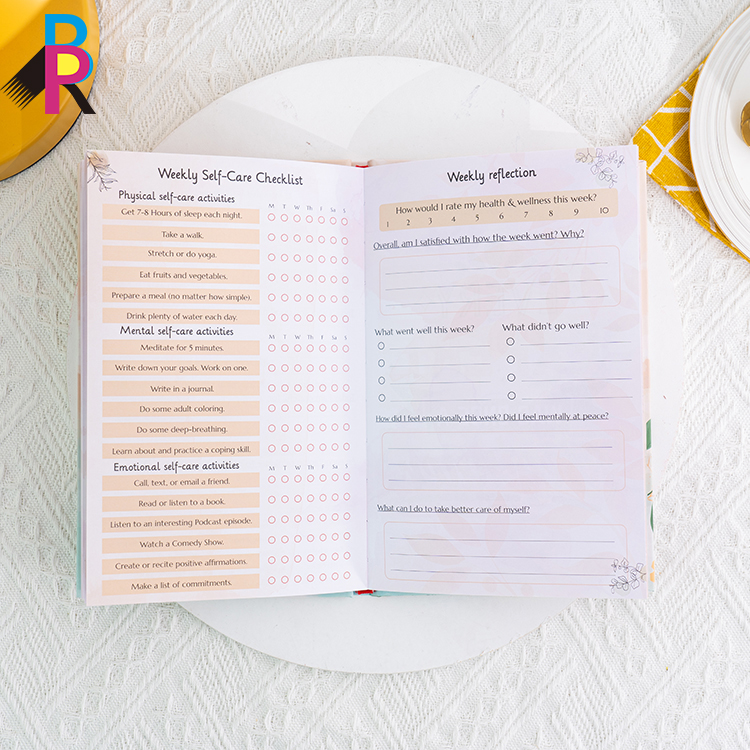 BR
Weekly Self-Care Checklist
Physical self-care activities
M T W Th F Sa S
Get 7-8 Hours of sleep each night.
Take a walk.
Stretch or do yoga.
Eat fruits and vegetables.
Prepare a meal (no matter how simple).
Drink plenty of water each day.
Mental self-care activities
M T W Th F Sa S
Meditate for 5 minutes.
Write down your goals. Work on one.
Write in a journal.
Do some adult coloring.
Do some deep-breathing.
Learn about and practice a coping skill.
Emotional self-care activities
M T W Th F Sa S
Call, text, or email a friend.
Read or listen to a book.
Listen to an interesting Podcast episode.
Watch a Comedy Show.
Create or recite positive affirmations.
Make a list of commitments.
Weekly reflection
How would I rate my health & wellness this week?
1 2 3 4 5 6 7 8 9 10
Overall, am I satisfied with how the week went? Why?
What went well this week?
What didn't go well?
How did I feel emotionally this week? Did I feel mentally at peace?
What can I do to take better care of myself?